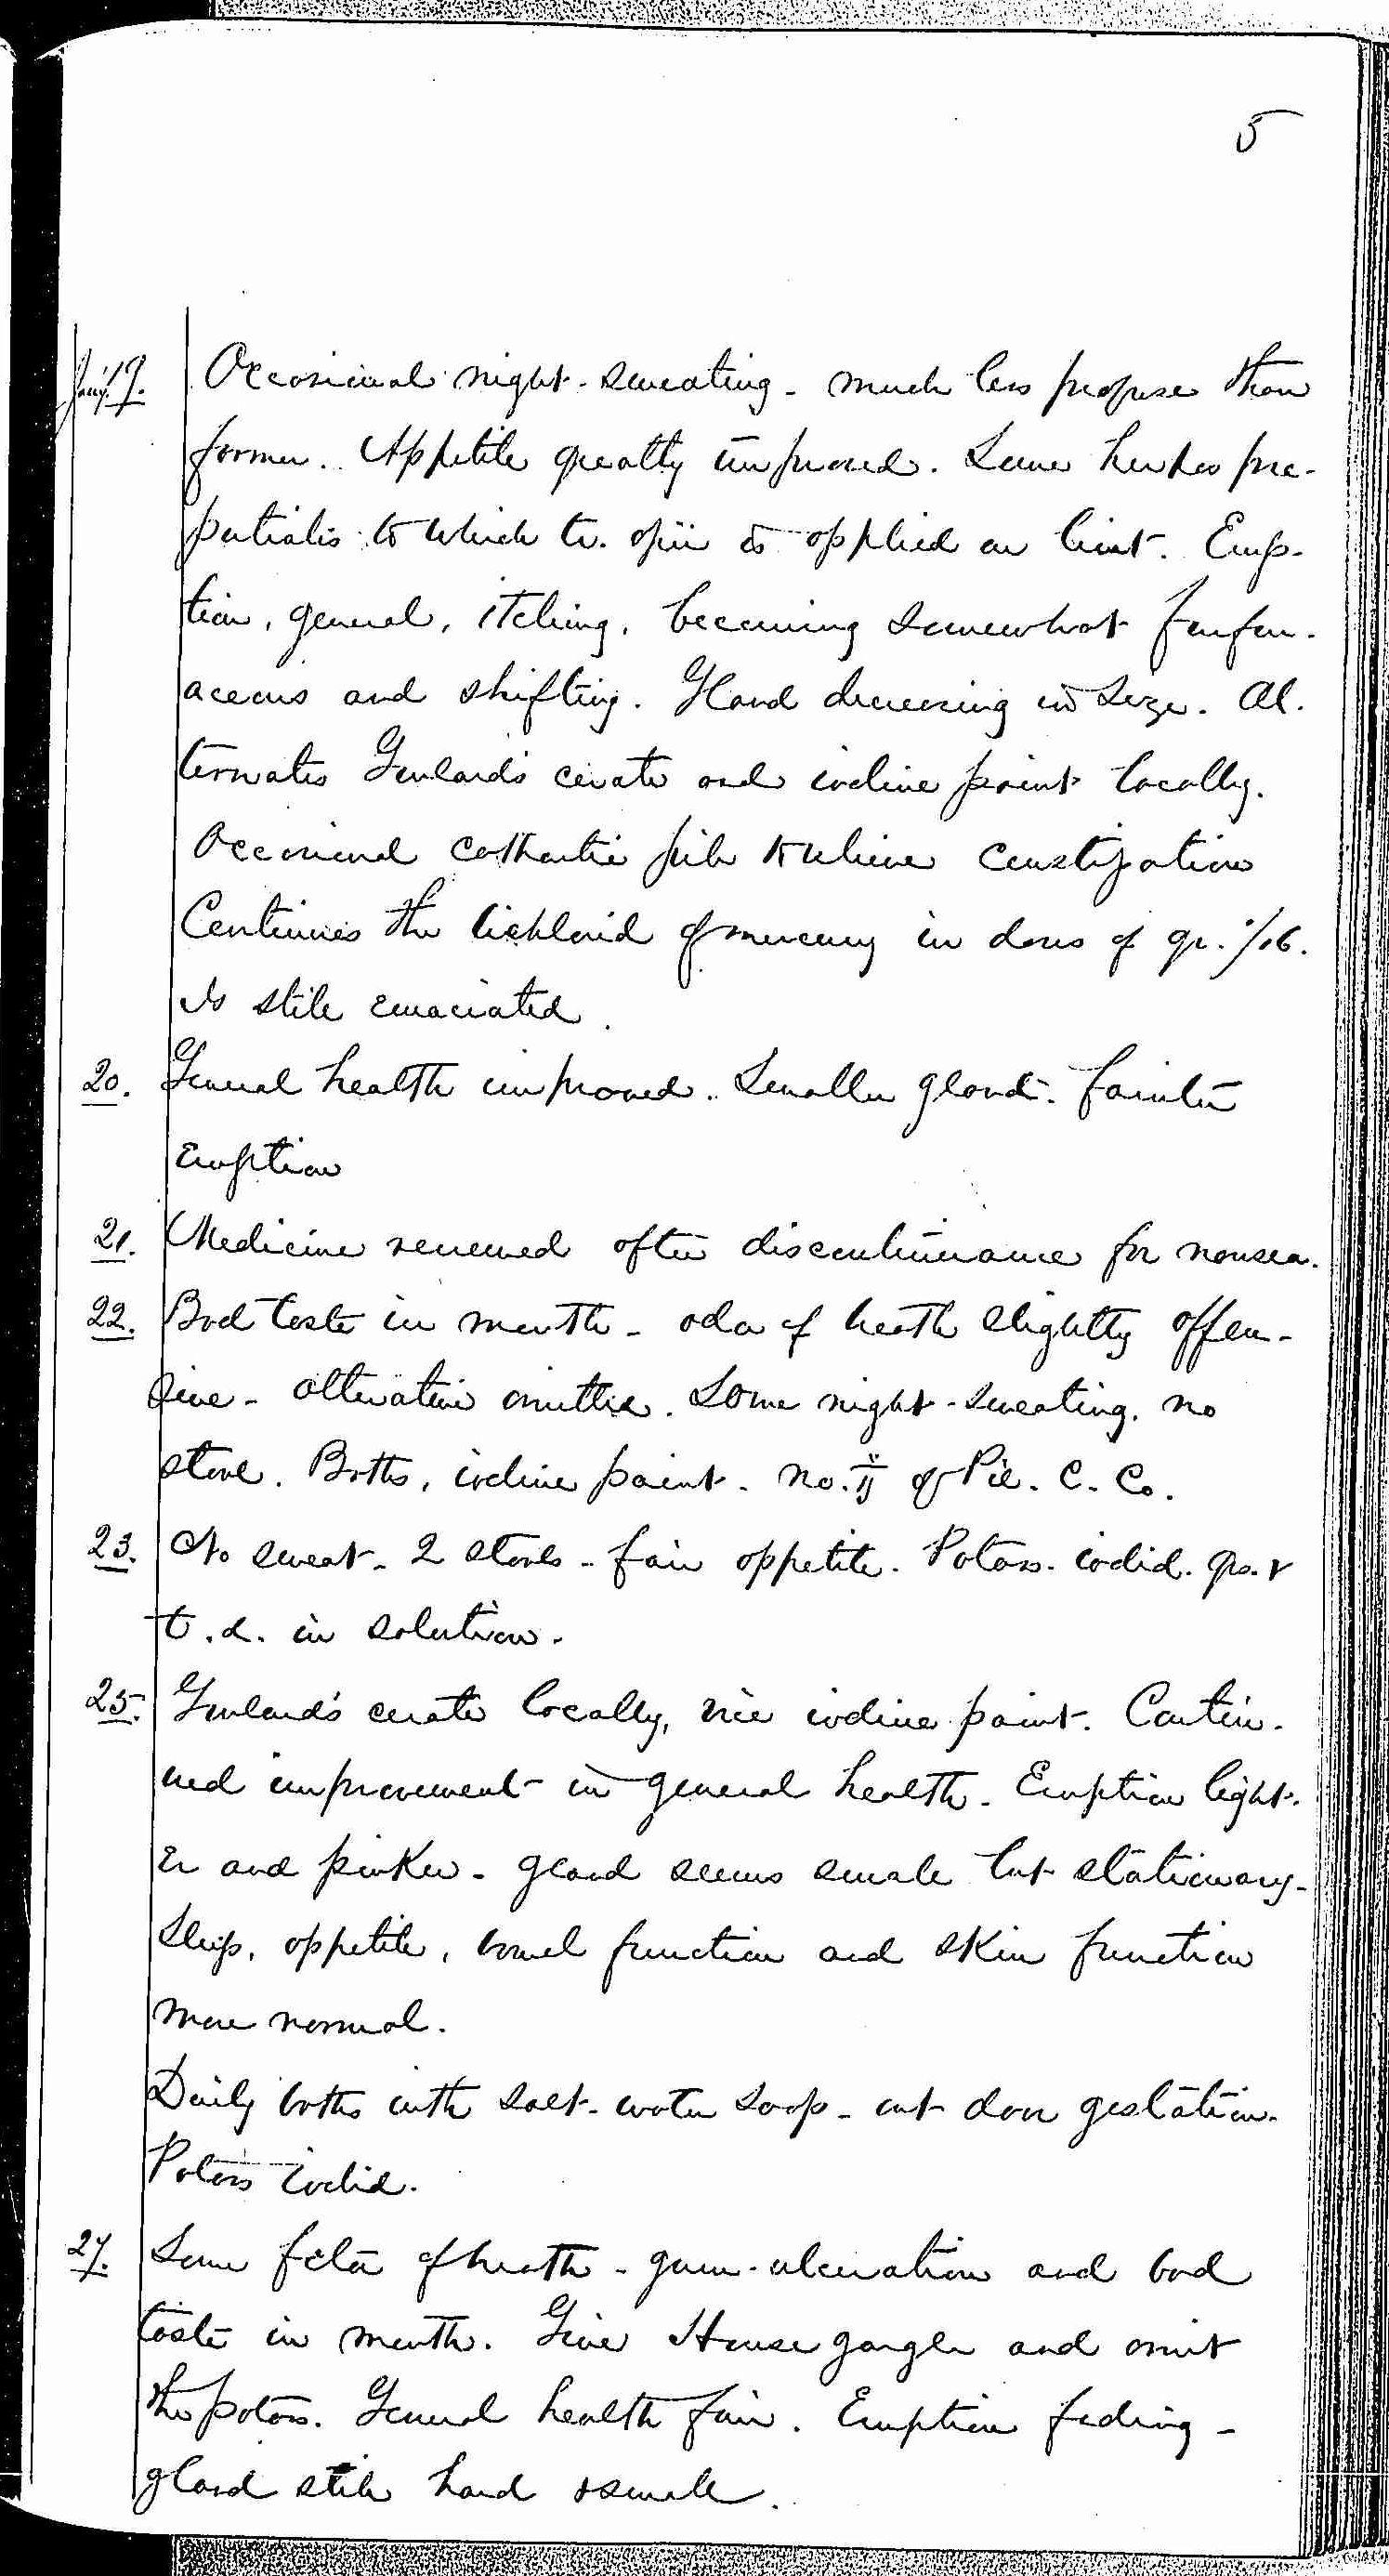 5
Jan'y 19. Occasional night-sweating - much less profuse than
former. Appetite greatly improved. Some herpes pre-
putialis to which tr. opii is applied on lint. Erup-
tion, general, itching, becoming somewhat furfur-
aceous and shifting. Gland decreasing in size. Al-
ternates Goulard's cerate and iodine paint locally.
Occasional cathartic pill to relieve constipation
Continues the bichlorid of mercury in doses of gr. 1/16.
Is still emaciated.
20. General health improved. Smaller gland. Fainter
Eruption
21. Medicine renewed after discontinuance for nausea.
22. Bad taste in mouth - odor of breath slightly offen-
sive - alterative omitted. Some night-sweating. no
stool. Baths, iodine paint. No. ij of Pil. C. Co.
23. No sweat - 2 stools - fair appetite. Potass. iodid. grs. v
t.d. in solution.
25. Goulard's cerate locally, vice iodine paint. Contin-
ued improvement in general health. Eruption light-
er and pinker - gland seems small but stationary -
Sleep, appetite, bowel function and skin function
more normal.
Daily baths with salt-water soap - out door gestation.
Potass iodid.
27. Some fetor of breath - gum-ulceration and bad
taste in mouth. Give House gargle and omit
the potass. General health fair. Eruption fading -
gland still hard & small.